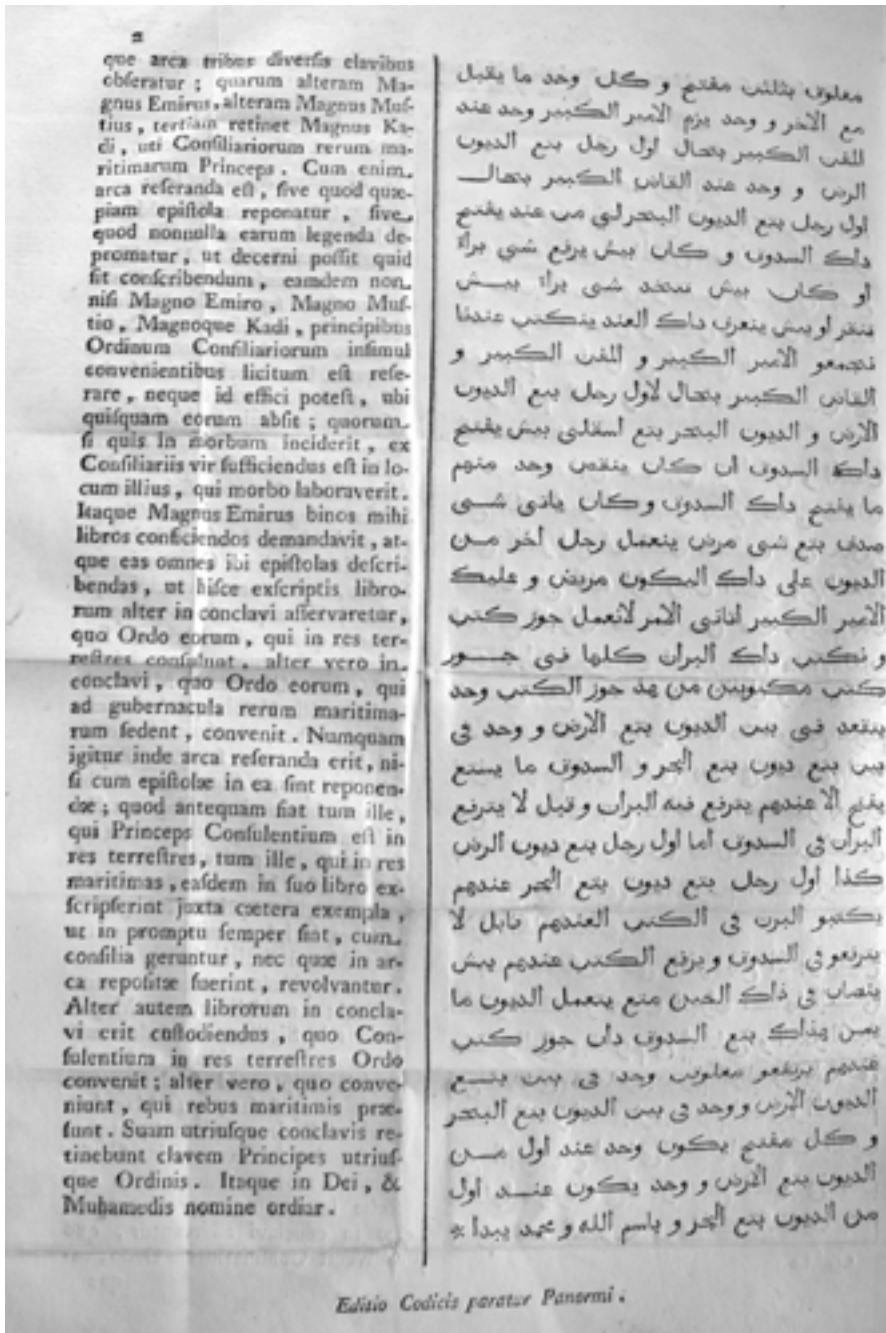 2
que arca tribus diverſis clavibus
obſeratur ; quarum alteram Ma-
gnus Emirus, alteram Magnus Muf-
tius , tertiam retinet Magnus Ka-
di , uti Conſiliariorum rerum ma-
ritimarum Princeps . Cum enim
arca reſeranda eſt , ſive quod quæ-
piam epiſtola reponatur , ſive
quod nonnulla earum legenda de-
promatur , ut decerni poſſit quid
ſit conſcribendum , eamdem non
niſi Magno Emiro , Magno Muf-
tio , Magnoque Kadi , principibus
Ordinum Conſiliariorum inſimul
convenientibus licitum eſt reſe-
rare , neque id effici poteſt , ubi
quiſquam eorum abſit ; quorum
ſi quis in morbum inciderit , ex
Conſiliariis vir ſufficiendus eſt in lo-
cum illius , qui morbo laboraverit .
Itaque Magnus Emirus binos mihi
libros conficiendos demandavit , at-
que eas omnes ibi epiſtolas deſcri-
bendas , ut hiſce exſcriptis libro-
rum alter in conclavi aſſervaretur ,
quo Ordo eorum , qui in res ter-
reſtres conſulunt , alter vero in
conclavi , quo Ordo eorum , qui
ad gubernacula rerum maritima-
rum ſedent , convenit . Numquam
igitur inde arca reſeranda erit , ni-
ſi cum epiſtolæ in ea ſint reponen-
dæ ; quod antequam fiat tum ille ,
qui Princeps Conſulentium eſt in
res terreſtres , tum ille , qui in res
maritimas , eaſdem in ſuo libro ex-
ſcripſerint juxta cætera exempla ,
ut in promptu ſemper ſint , cum
conſilia geruntur , nec quæ in ar-
ca repoſitæ fuerint , revolvantur .
Alter autem librorum in concla-
vi erit cuſtodiendus , quo Con-
ſulentium in res terreſtres Ordo
convenit ; alter vero , quo conve-
niunt , qui rebus maritimis præ-
ſunt . Suam utriuſque conclavis re-
tinebunt clavem Principes utriuſ-
que Ordinis . Itaque in Dei , &
Muhamedis nomine ordiar .
مفتح و كل وحد ما يقبل
مع الاخر و وحد يزم الامير الكبير وحد عند
الكبير بتحال اول رجل بتع الديون
و وحد عند القاضي الكبير بتحال
اول رجل بتع الديون من عند يفتح
داك السدوق و كان بيش يرفع شي
او كان بيش شي
او بيش يتعرف داك العند عندنا
الامير الكبير و الكبير و
القاضي الكبير بتحال لاول رجل بتع الديون
الارض و الديون البحر بتع بيش يفتح
داك السدوق ان كان ينقص وحد منهم
ما يفتح داك السدوق و كان ياتي شي
بتع شي مرض يتعمل رجل اخر من
الديون على داك اليكون مريض و عليك
الامير الكبير الامر جوز كتب
و داك كلها في
كتب من جوز الكتب وحد
ينقعد في بيت الديون بتع الارض و وحد في
بيت بتع ديون بتع البحر و السدوق ما
يفتح الا عندهم يترفع فيه و قبل لا يترفع
في السدوق اما اول رجل بتع ديون
كذا اول رجل بتع ديون بتع البحر عندهم
يكتبو في الكتب العندهم لا
يترفعو في السدوق و يرفع الكتب عندهم بيش
في ذاك يتعمل الديون ما
بتع السدوق جوز كتب
عندهم وحد في بيت
الديون الارض و وحد في بيت الديون بتع البحر
و كل مفتح يكون وحد عند اول من
الديون بتع الارض و وحد يكون عند اول
من الديون بتع البحر و باسم الله و محمد يبدا
Editio Codicis paratur Panormi .